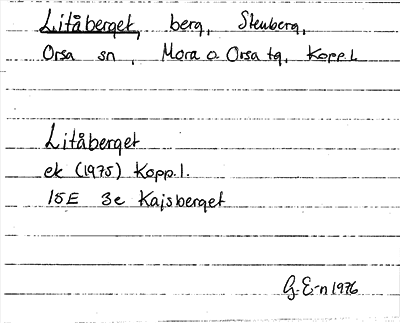 Litåberget, berg, Stenberg,
Orsa sn, Mora o Orsa tg, Kopp.l.
Litåberget
ek (1975) Kopp.l.
15E 3e Kajsberget
G. E-n 1976